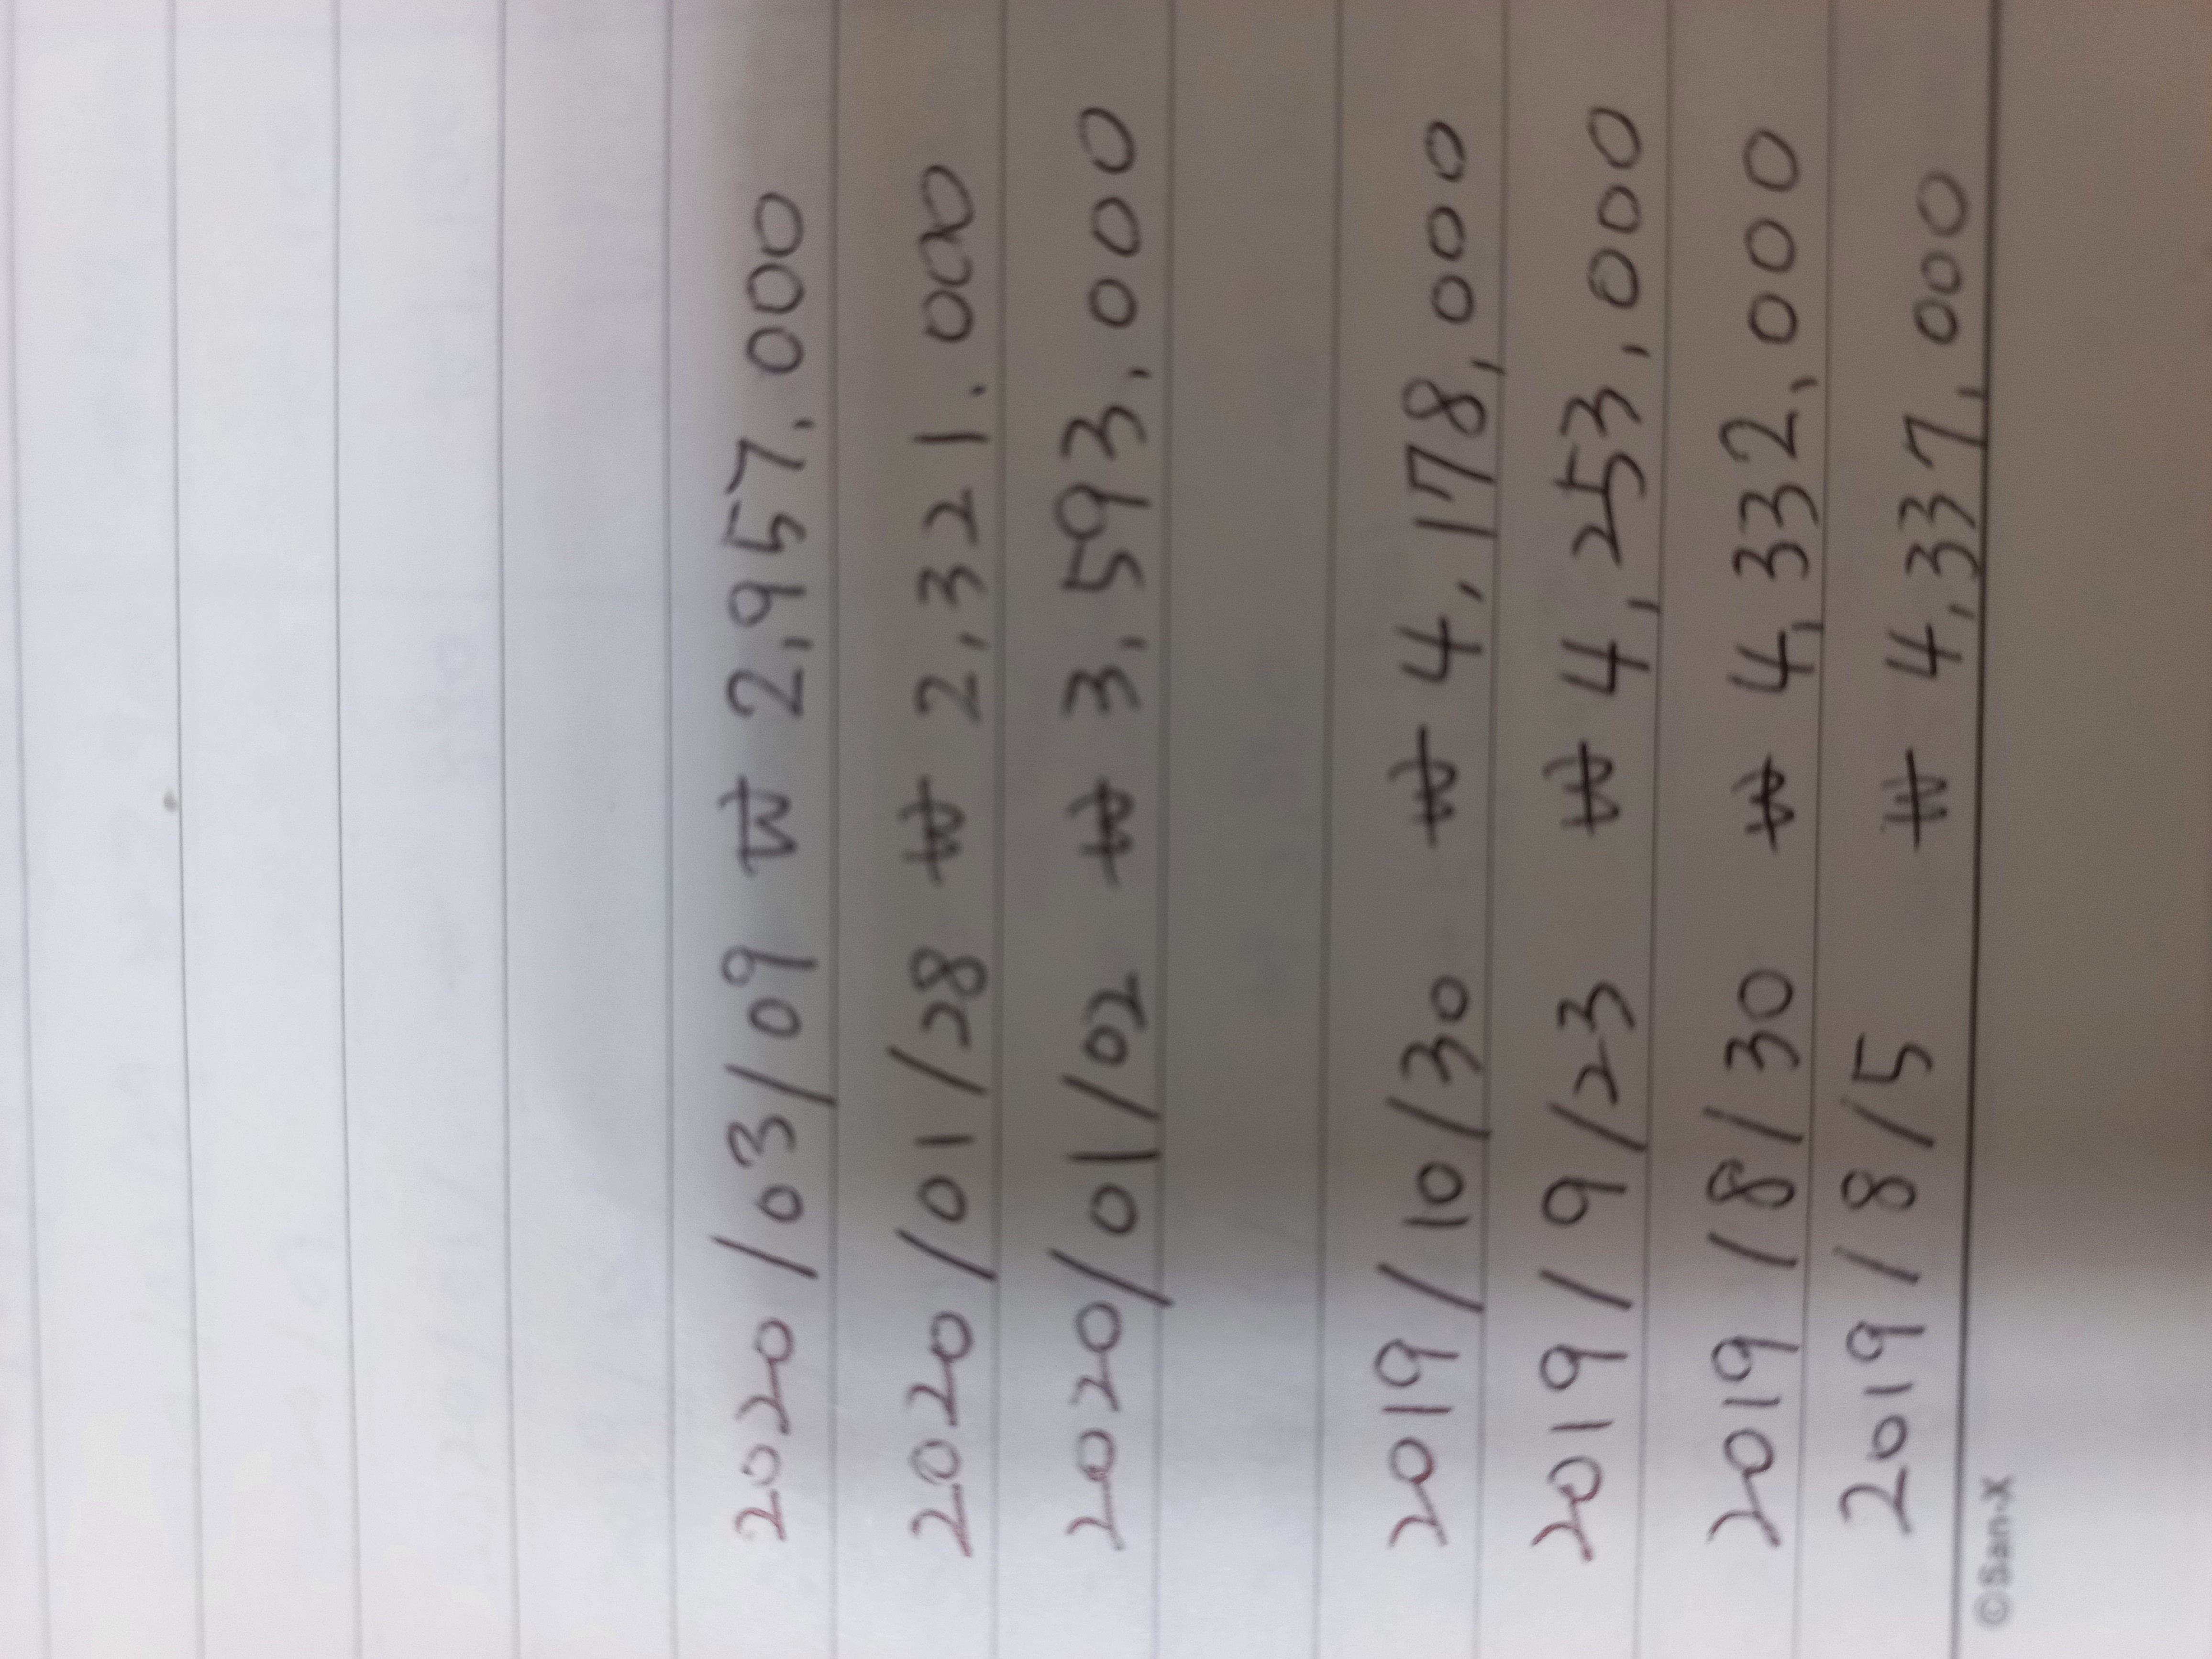 2020/03/09 ₩ 2,957.000
2020/01/28 ₩ 2,321.000
2020/01/02 ₩ 3,593,000
2019/10/30 ₩ 4,178,000
2019/9/23 ₩ 4,253,000
2019/8/30 ₩ 4,332,000
2019/8/5 ₩ 4,337,000
©San-X